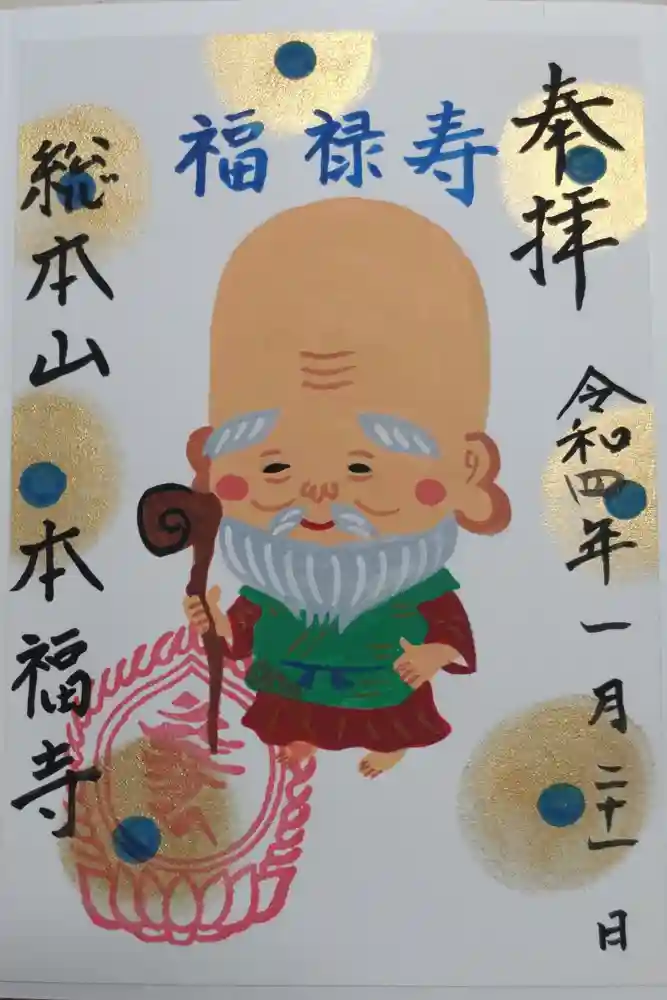 奉拝
令和四年一月二十一日
福禄寿
総本山
本福寺